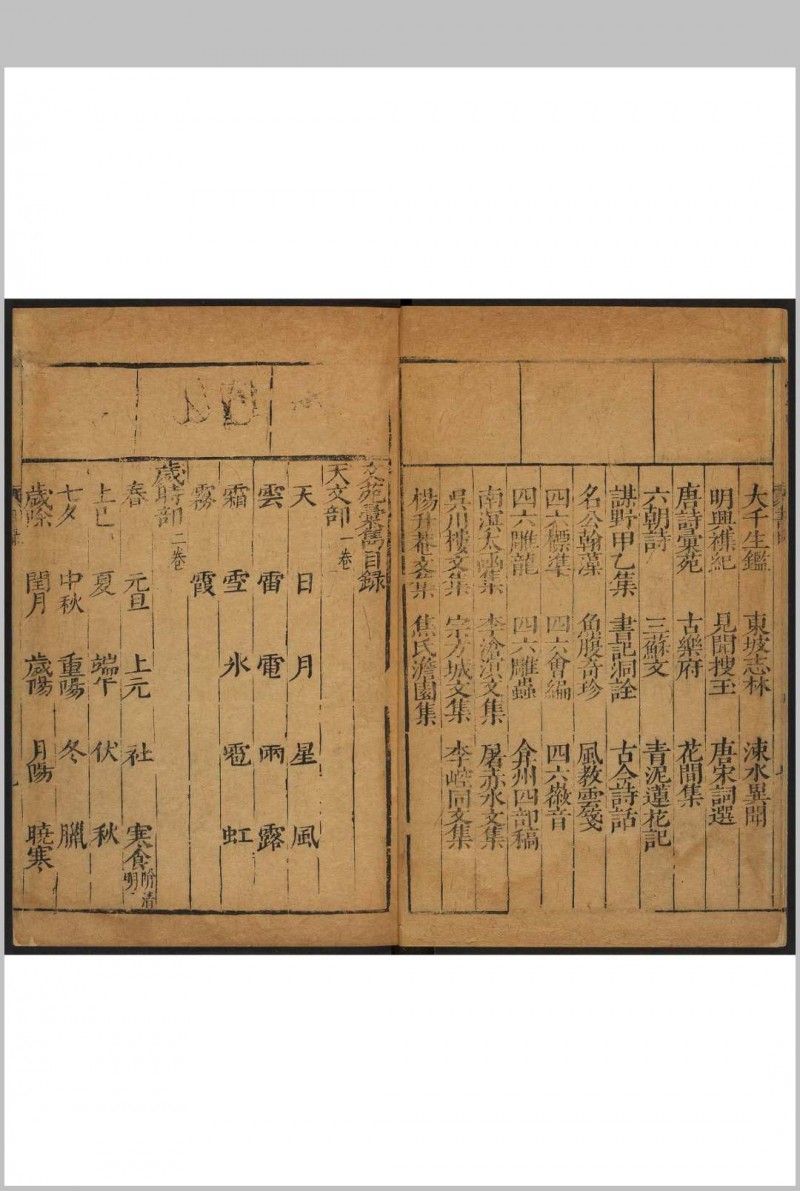 大千生鑑 東坡志林 涑水異聞
明興襍紀 見聞搜玉 唐宋詞選
唐詩彙苑 古樂府 花間集
六朝詩 三蘇文 青泥蓮花記
謀野甲乙集 書記洞詮 古今詩話
名公翰藻 魚腹奇珍 風教雲箋
四六標準 四六會編 四六徽音
四六雕龍 四六雕蟲 弇州四部稿
南溟太函集 李滄溟文集 屠赤水文集
吳川樓文集 宗方城文集 李崆同文集
楊升菴文集 焦氏澹園集
文苑彙雋目録
天文部 一卷
天 日 月 星 風
雲 雷 電 雨 露
霜 雪 氷 雹 虹
霧 霞
歲時部 二卷
春 元旦 上元 社 寒食 附清明
上巳 夏 端午 伏 秋
七夕 中秋 重陽 冬 臘
歲除 閏月 歲陽 月陽 曉寒